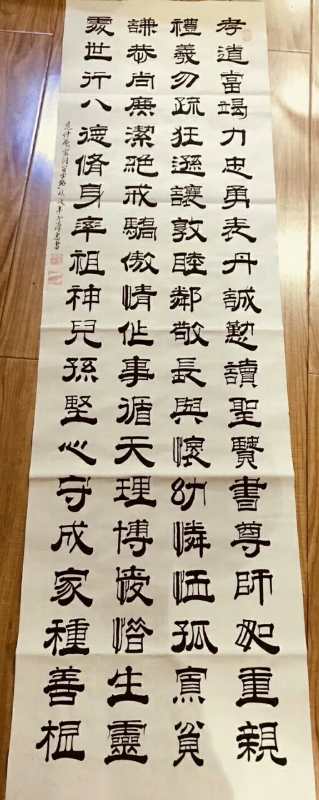 孝道當竭力忠勇表丹誠懃讀聖賢書尊師如重親
禮義勿疏狂遜讓敦睦鄰敬長與懷幼憐恤孤寡貧
謙恭尚廉潔絕戒驕傲情作事循天理博愛惜生靈
處世行八德脩身率祖神兒孫堅心守成家種善根
范仲淹家訓百字銘戊戌年書